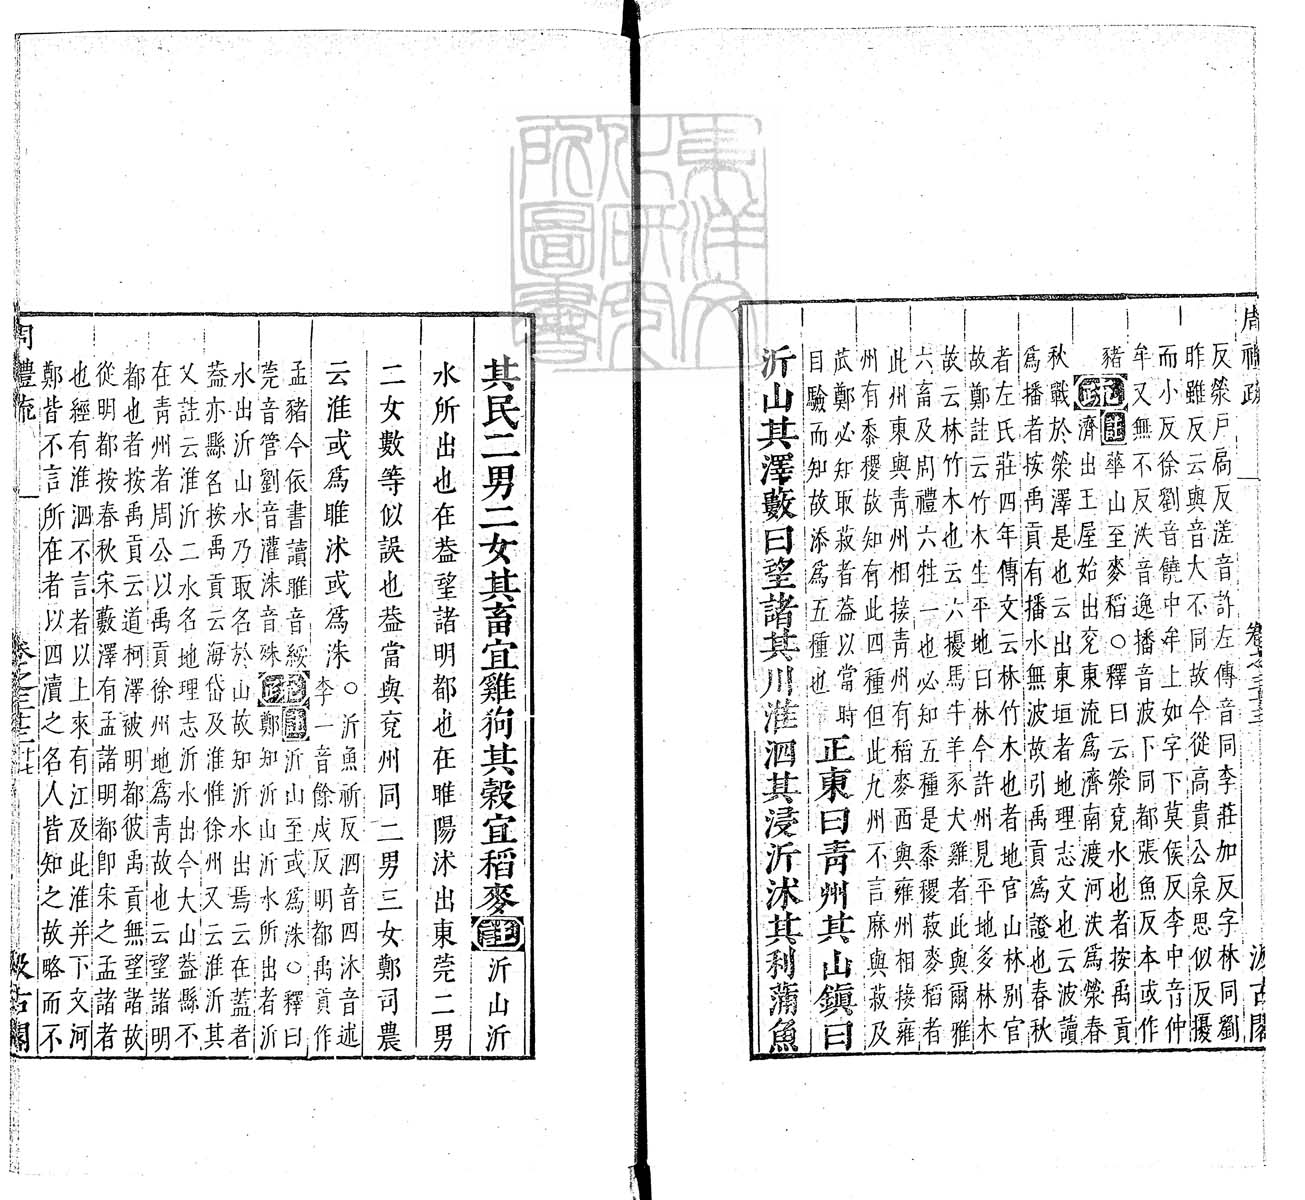 周禮疏 卷之三十三 汲古閣
反滎戶扃反溠音詐左傳音同李莊加反字林同劉
昨雖反云與音大不同故今從高貴公㒸思似反擾
而小反徐劉音饒中牟上如字下莫侯反李中音仲
牟又無不反泆音逸播音波下同都張魚反本或作
豬 疏註華山至麥稻○釋曰云滎兗水也者按禹貢
濟出王屋始出兗東流爲濟南渡河泆爲滎春
秋戰於滎澤是也云出東垣者地理志文也云波讀
爲播者按禹貢有播水無波故引禹貢爲證也春秋
者左氏莊四年傳文云林竹木也者地官山林別官
故鄭註云竹木生平地曰林今許州見平地多林木
故云林竹木也云六擾馬牛羊豕犬雞者此與爾雅
六畜及周禮六牲一也必知五種是黍稷菽麥稻者
此州東與青州相接青州有稻麥西與雍州相接雍
州有黍稷故知有此四種但此九州不言麻與菽及
苽鄭必知取菽者葢以當時
目驗而知故添爲五種也
正東曰青州其山鎮曰
沂山其澤藪曰望諸其川淮泗其浸沂沭其利蒲魚
其民二男二女其畜宜雞狗其穀宜稻麥註沂山沂
水所出也在葢望諸明都也在睢陽沭出東莞二男
二女數等似誤也葢當與兗州同二男三女鄭司農
云淮或爲睢沭或爲洙
○沂魚祈反泗音四沭音述
李一音餘戍反明都禹貢作
孟豬今依書讀睢音綏
莞音管劉音灌洙音殊
疏註沂山至或爲洙○釋曰
鄭知沂山沂水所出者沂
水出沂山水乃取名於山故知沂水出焉云在葢者
葢亦縣名按禹貢云海岱及淮惟徐州又云淮沂其
乂註云淮沂二水名地理志沂水出今大山葢縣不
在青州者周公以禹貢徐州地爲青故也云望諸明
都也者按禹貢云道柯澤被明都彼禹貢無望諸故
從明都按春秋宋藪澤有孟諸明都卽宋之孟諸者
也經有淮泗不言者以上來有江及此淮并下文河
鄭皆不言所在者以四瀆之名人皆知之故略而不
周禮疏 卷之三十三 十七 汲古閣
東洋文化研究所圖書